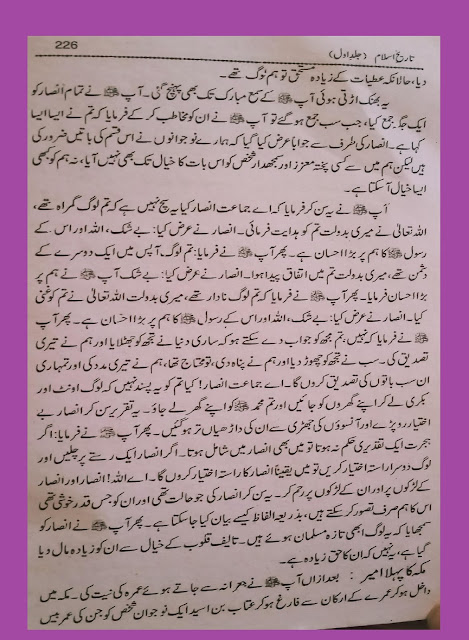 تاریخ اسلام (جلد اول) 226
دیا، حالانکہ عطیات کے زیادہ مستحق تو ہم لوگ تھے۔
یہ بھنک اڑتی ہوئی آپ ﷺ کے سمع مبارک تک بھی پہنچ گئی۔ آپ ﷺ نے تمام انصار کو
ایک جگہ جمع کیا، جب سب جمع ہو گئے تو آپ ﷺ نے ان کو مخاطب کر کے فرمایا کہ تم نے ایسا ایسا
کہا ہے۔ انصار کی طرف سے جواباً عرض کیا گیا کہ ہمارے نوجوانوں نے اس قسم کی باتیں ضرور کی
ہیں لیکن ہم میں سے کسی پختہ معزز اور سمجھدار شخص کو اس بات کا خیال تک بھی نہیں آیا، نہ ہم کو کبھی
ایسا خیال آ سکتا ہے۔
آپ ﷺ نے یہ سن کر فرمایا کہ اے جماعت انصار کیا یہ سچ نہیں ہے کہ تم لوگ گمراہ تھے،
اللہ تعالیٰ نے میری بدولت تم کو ہدایت فرمائی۔ انصار نے عرض کیا: بے شک، اللہ اور اس کے
رسول ﷺ کا ہم پر بڑا احسان ہے۔ پھر آپ ﷺ نے فرمایا: تم لوگ آپس میں ایک دوسرے کے
دشمن تھے، میری بدولت تم میں اتفاق پیدا ہوا۔ انصار نے عرض کیا: بے شک آپ ﷺ نے ہم پر
بڑا احسان فرمایا۔ پھر آپ ﷺ نے فرمایا کہ تم لوگ نادار تھے، میری بدولت اللہ تعالیٰ نے تم کو غنی
کیا۔ انصار نے عرض کیا: بے شک، اللہ اور اس کے رسول ﷺ کا ہم پر بڑا احسان ہے۔ پھر آپ
ﷺ نے فرمایا کہ نہیں، تم مجھ کو جواب دے سکتے ہو کہ ساری دنیا نے تجھ کو جھٹلایا اور ہم نے تیری
تصدیق کی۔ سب نے تجھ کو چھوڑ دیا اور ہم نے پناہ دی، تو محتاج تھا، ہم نے تیری مدد کی اور تمہاری
ان سب باتوں کی تصدیق کروں گا۔ اے جماعت انصار! کیا تم کو یہ پسند نہیں کہ لوگ اونٹ اور
بکری لے کر اپنے گھروں کو جائیں اور تم محمد ﷺ کو اپنے گھر لے جاؤ۔ یہ تقریر سن کر انصار بے
اختیار رو پڑے اور آنسوؤں کی جھڑی سے ان کی داڑھیاں تر ہو گئیں۔ پھر آپ ﷺ نے فرمایا: اگر
ہجرت ایک تقدیری حکم نہ ہوتا تو میں بھی انصار میں شامل ہوتا۔ اگر انصار ایک رستے پر چلیں اور
لوگ دوسرا راستہ اختیار کریں تو میں یقیناً انصار کا راستہ اختیار کروں گا۔ اے اللہ! انصار اور انصار
کے لڑکوں پر اور ان کے لڑکوں پر رحم کر۔ یہ سن کر انصار کی جو حالت تھی اور ان کو جس قدر خوشی تھی
اس کا ہم صرف تصور کر سکتے ہیں، بذریعہ الفاظ کیسے بیان کیا جا سکتا ہے۔ پھر آپ ﷺ نے انصار کو
سمجھایا کہ یہ لوگ ابھی تازہ مسلمان ہوئے ہیں۔ تالیف قلوب کے خیال سے ان کو زیادہ مال دیا
گیا ہے، یہ نہیں کہ ان کا حق زیادہ ہے۔
مکہ کا پہلا امیر : بعد ازاں آپ ﷺ نے جعرانہ سے جاتے ہوئے عمرہ کی نیت کی۔ مکہ میں
داخل ہو کر عمرے کے ارکان سے فارغ ہو کر عتاب بن اسید ایک نوجوان شخص کو جن کی عمر بیس